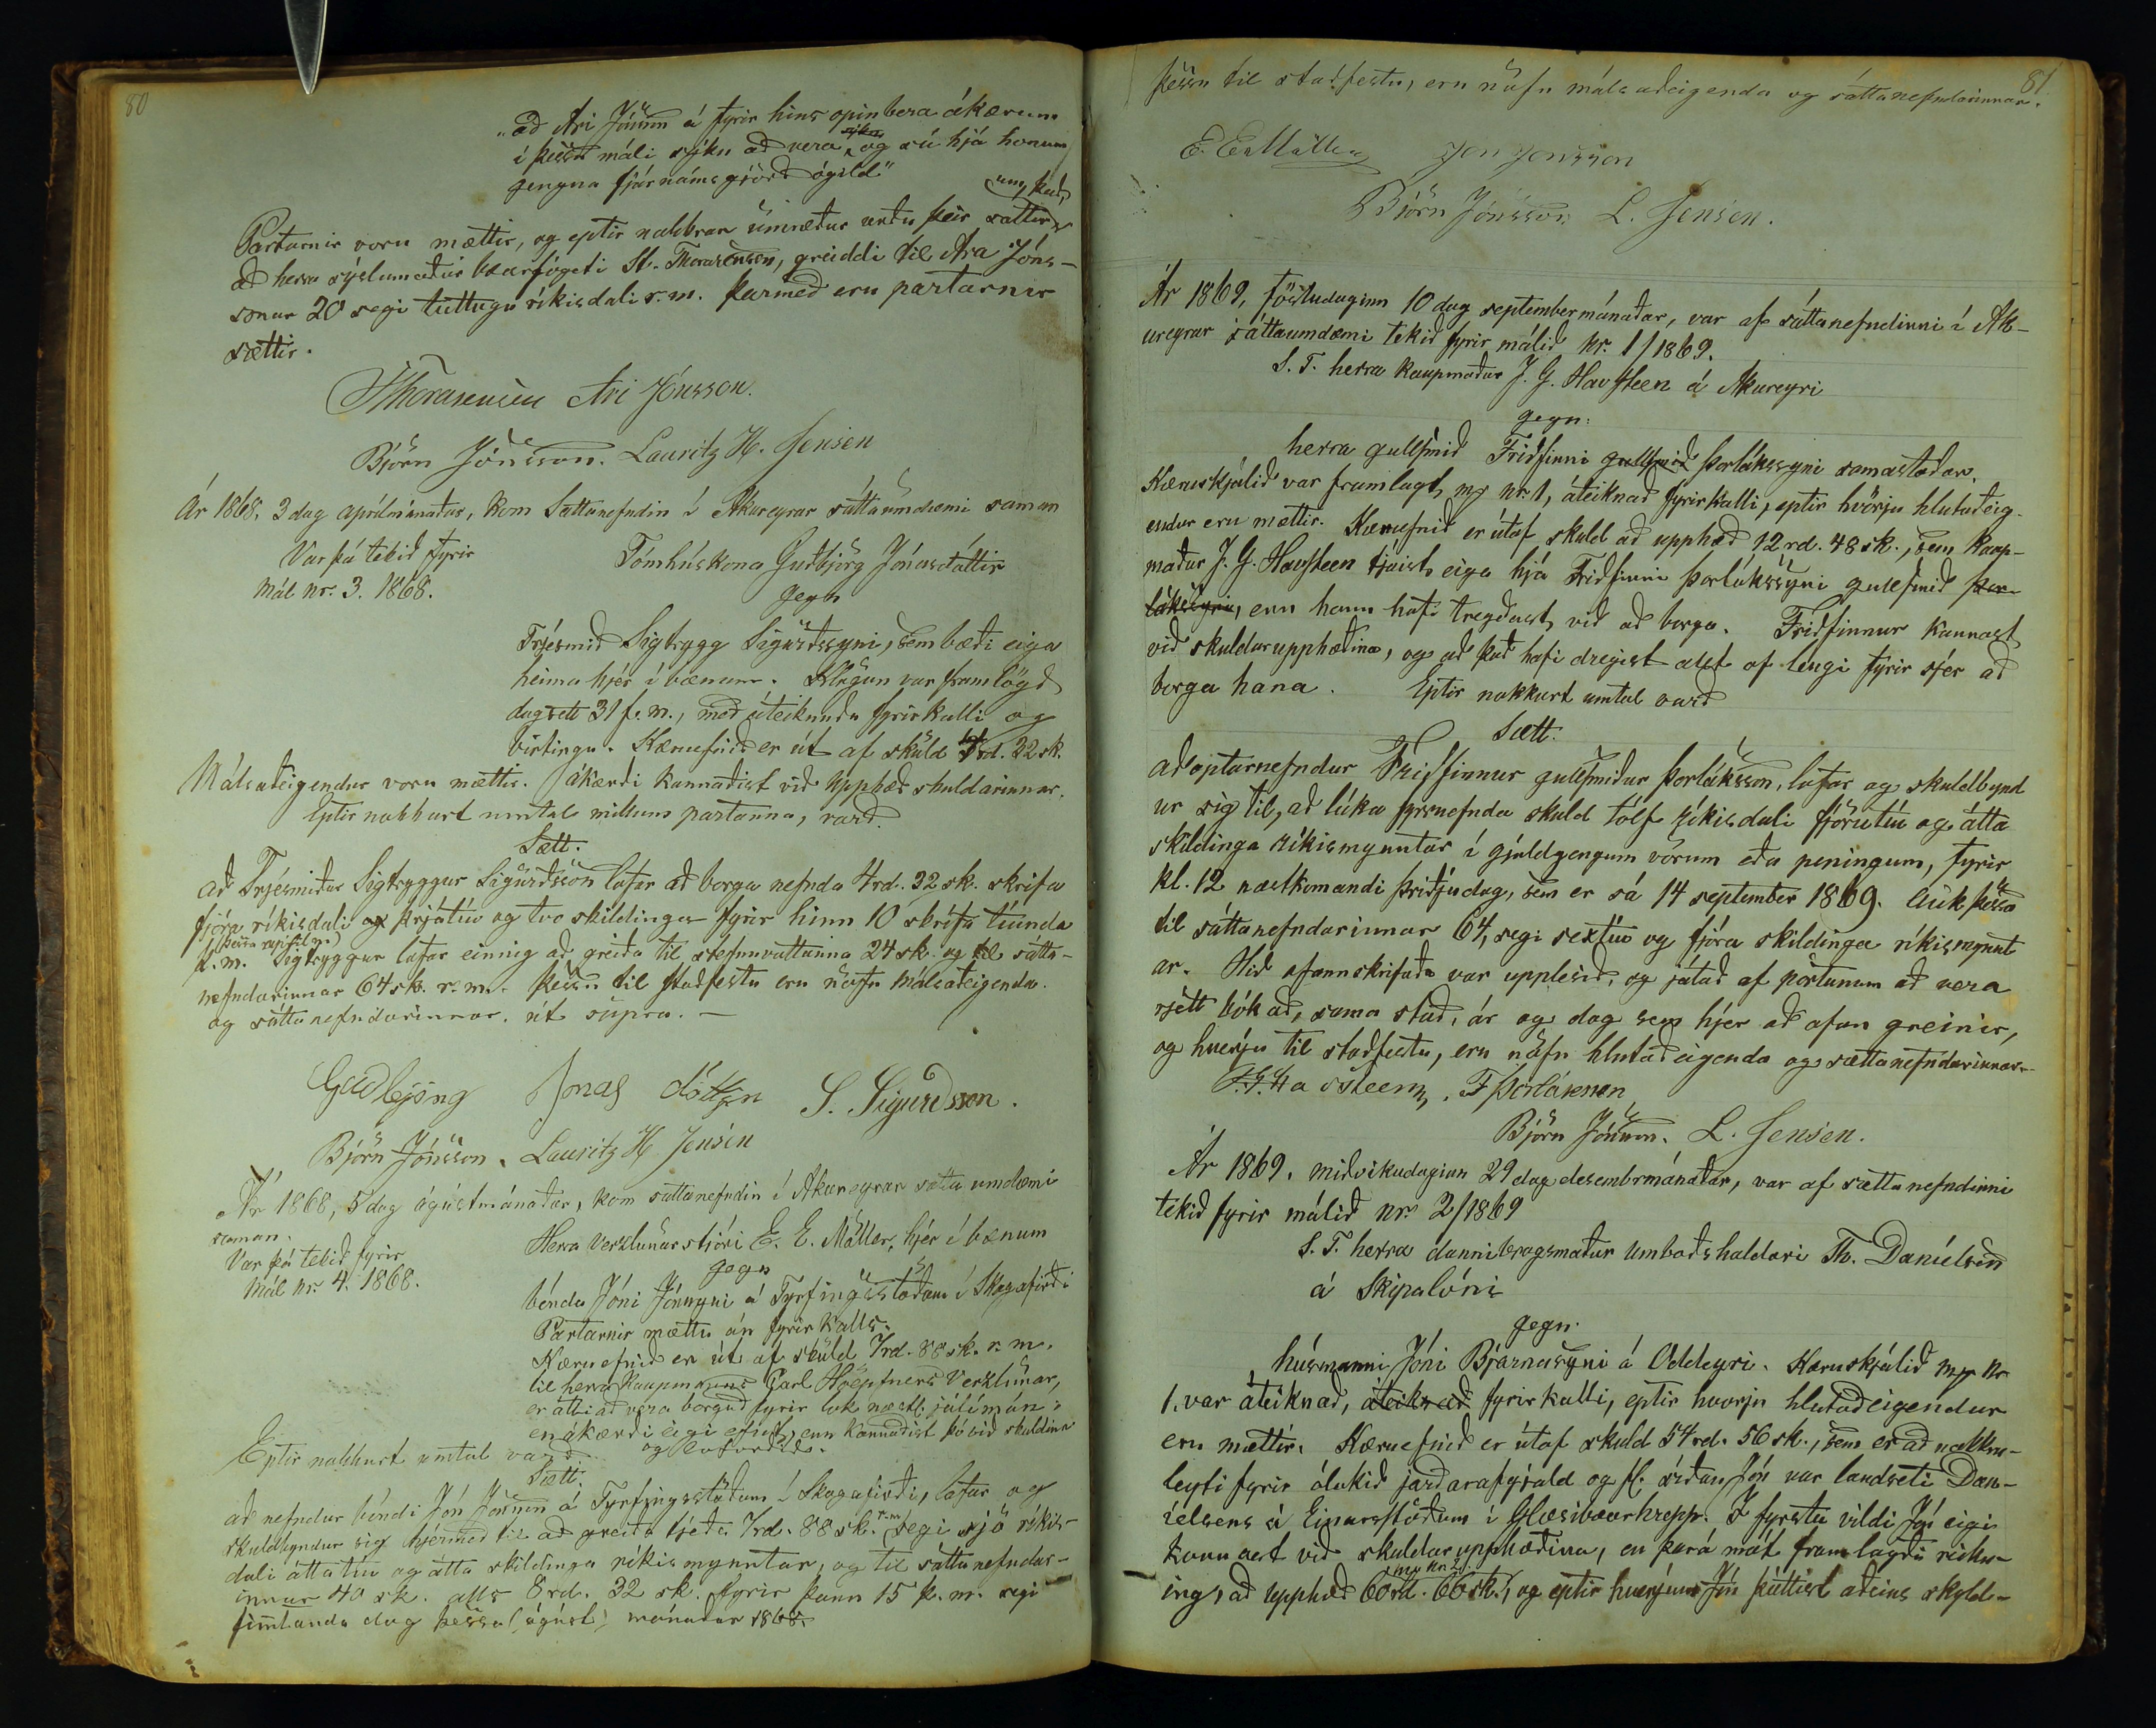 80
"að Ari Jónsson á fyrir hins opinbera ákærum
í þessu máli sýkn að vera, og sú hjá honum
gengna fjárnámsgjörð ógild"
Partarnir voru mættir, og eptir nokkrar umræður urðu þeir sáttir um það,
að herra sýslumaður bæarfógeti St. Thorarensen, greiddi til Ara Jóns-
sonar 20 segi tuttugu ríkisdali r.m. Þarmeð eru partarnir
sættir.
SThorarensen Ari Jónsson.
Björn Jónsson. Lauritz H. Jensen
Ár 1868, 3 dag aprílmánaðar, kom Sáttanefndin í Akureyrar sáttaumdæmi saman
Var þá tekið fyrir
Mál nr. 3. 1868.
Tómhúskona Guðbjörg Jónasdóttir
gegn
Trésmið Sigtrygg Sigurðssyni, sem bæði eiga
heima hjér í bænum. Klagan var framlögð
dagsett 31 f.m., með áteiknuðu fyrirkalli og
birtingu. Kæruefnið er út af skuld 4rd. 32 sk.
Málsaðeigendur voru mættir. Ákærði kannaðist við upphæð skuldarinnar.
Eptir nokkurt umtal millum partanna, varð.
Sætt.
að Trjésmiður Sigtryggur Sigurðsson lofar að borga nefnda 4rd. 32 sk. skrifa
fjóra ríkisdali og þrjátíu og tvo skildinga fyrir hinn 10 skrifa tíunda
þ.m. Sigtryggur lofar einnig að greiða til stefnuvottanna 24 sk. og til sátta-
nefndarinnar 64 sk. r.m. Þessu til staðfestu eru nöfn málsaðeigenda
og sáttanefndarinnar. út supra. –
Guðbjörg Jónas dóttir S. Sigurdsson.
Björn Jónsson. Lauritz H Jensen
Ár 1868, 5 dag ágústmánaðar, kom sáttanefndin í Akureyrar sátta umdæmi
saman.
Var þá tekið fyrir
Mál nr. 4. 1868.
Herra Verzlunarstjóri E. E. Möller, hjér í bænum
gegn
bónda Jóni Jónssyni á Tyrfingsstöðum í Skagafirði
Partarnir mættu án fyrirkalls.
Kæruefnið er út af skuld 7rd. 88 sk. r.m.
til herra Kaupmanns Carl Höepfners Verzlunar,
er átti að vera borguð fyrir lok næstl. júlímán.
en ákærði eigi efnt, enn kannaðist þó við skuldina
og loforðið.
Eptir nokkurt umtal varð
Sætt.
að nefndur bóndi Jón Jónsson á Tyrfingsstöðum í Skagafirði, lofar og
skuldbyndur sig hjermeð til að greiða tjeða 7rd. 88 sk. r.m segi sjö ríkis-
dali áttatíu og átta skildinga ríkismyntar, og til sáttanefndar-
innar 40 sk. alls 8rd. 32 sk. fyrir þann 15 þ.m. segi
fimtánda dag þessa (ágúst) mánaðar 1868.
81
Þessu til staðfestu, eru nöfn málsaðeigenda og sáttanefndarinnar.
E. E. Möller Jón Jónsson
Björn Jónsson. L. Jensen.
Ár 1869, föstudaginn 10 dag septembermánaðar, var af sáttanefndinni í Ak-
ureyrar sáttaumdæmi tekið fyrir málið Nr. 1/1869.
S. T. herra kaupmaður J. G. Havsteen á Akureyri
gegn.
herra gullsmið Friðfinni gullsmið Þorlákssyni samastaðar.
Kæruskjalið var framlagt, nr 1, áteiknað fyrirkalli, eptir hvörju hlutaðeig-
endur eru mættir. Kæruefnið er útaf skuld að upphæð 12 rd. 48 sk., sem kaup-
maður J. G. Havsteen tjáist eiga hjá Friðfinni Þorlákssyni gullsmið Þor-
lákssyni, enn hann hafi tregðast við að borga. Friðfinnur kannast
við skuldarupphæðina, og að það hafi dregist alt of lengi fyrir sjér að
borga hana. Eptir nokkurt umtal varð
Sætt.
að optarnefndur Friðfinnur gullsmiður Þorláksson, lofar og skuldbynd
ur sig til, að lúka fyrnefnda skuld tólf ríkisdali fjörutíu og átta
skildinga ríkismyntar í gjaldgengum vörum eða peningum, fyrir
kl. 12 næstkomandi þriðjudag, sem er sá 14 september 1869. Auk þess
til sáttanefndarinnar 64, segi sextíu og fjóra skildinga ríkismynt
ar. Hið ofannskrifaða var upplesið, og játað af pörtunum að vera
rjett bókað, sama stað, ár og dag sem hjer að ofan greinir,
og hverju til staðfestu, eru nöfn hlutaðeigenda og sættanefndarinnar.
J. G. Havsteen, F Þorláksson
Björn Jónsson. L. Jensen.
Ár 1869, miðvikudaginn 29 dag desembrmánaðar, var af sættanefndinni
tekið fyrir málið nr. 2/1869
S. T. herra dannibrogsmaður Umboðshaldari Th. Daníelsen
á Skipalóni
gegn.
húsmanni Jóni Bjarnasyni á Oddeyri. Kæruskjalið Nr
1. var áteiknað, áteiknað fyrirkalli, eptir hvorju hlutaðeigendur
eru mættir. Kæruefnið er útaf skuld 54 rd. 56 sk., sem er að nokkru-
leyti fyrir ólokið jarðarafgjald og fl. síðan Jón var landseti Dan-
íelsens á Einarsstöðum í Glæsibæarhrepp. Í fyrstu vildi Jón eigi
kannast við skuldarupphæðina, en þará mót framlagði reikn-
ing, að upphæð 60 rd. 66 sk., og eptir hverjum Jón þóttist aðeins skyld-